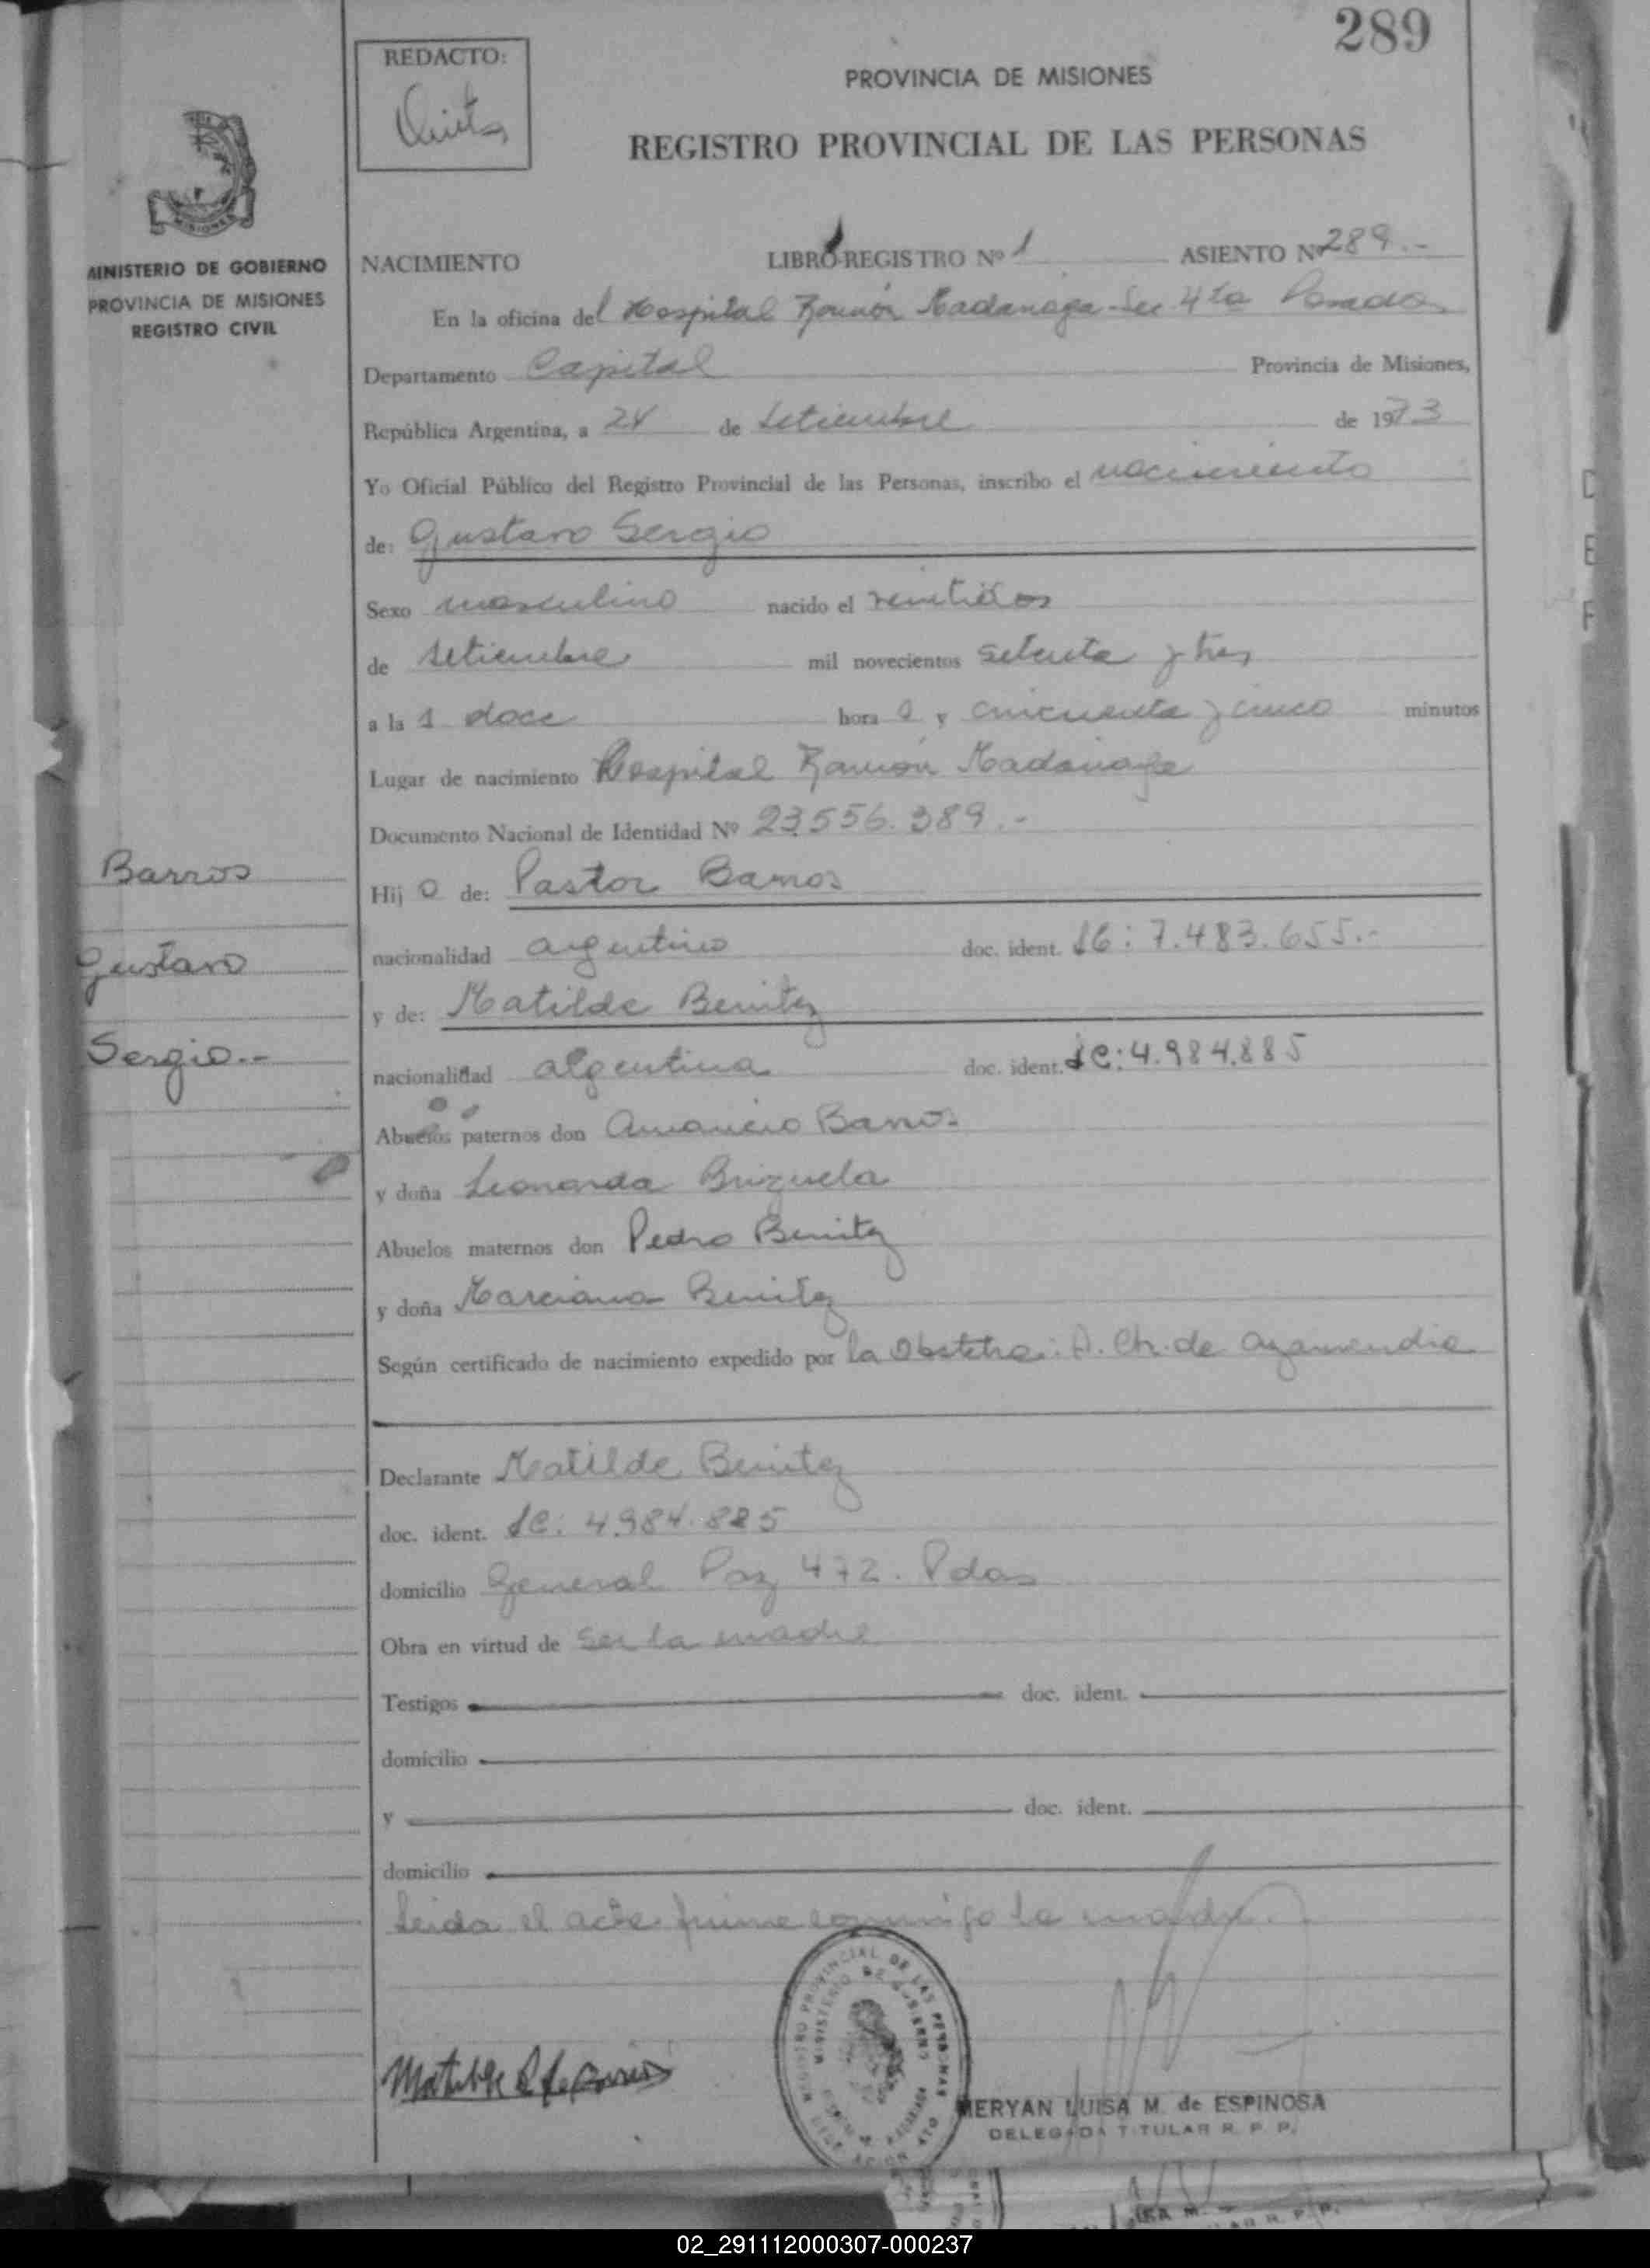 289
REDACTO:
PROVINCIA DE MISIONES
REGISTRO PROVINCIAL DE LAS PERSONAS
MINISTERIO DE GOBIERNO
PROVINCIA DE MISIONES
REGISTRO CIVIL
NACIMIENTO LIBRO REGISTRO Nº 1 ASIENTO Nº 289.-
En la oficina del Hospital Ramón Madariaga - Sec 4ta Posadas
Departamento Capital Provincia de Misiones,
República Argentina, a 24 de Setiembre de 1973
Yo Oficial Público del Registro Provincial de las Personas, inscribo el nacimiento
de: Gustavo Sergio
Sexo masculino nacido el veintidos
de setiembre mil novecientos setenta y tres
a la s doce hora s y cincuenta y cinco minutos
Lugar de nacimiento Hospital Ramón Madariaga
Documento Nacional de Identidad Nº 23.556.389.-
Barros
Hij o de: Pastor Barros
Gustavo
nacionalidad argentino doc. ident. LE: 7.483.655.-
y de: Matilde Benitez
Sergio.-
nacionalidad argentina doc. ident. LC: 4.984.885
Abuelos paternos don Amancio Barros
y doña Leonarda Brizuela
Abuelos maternos don Pedro Benitez
y doña Marciana Benitez
Según certificado de nacimiento expedido por la Obstetra: A. Ch. de Azarmendia
Declarante Matilde Benitez
doc. ident. LC: 4.984.885
domicilio General Paz 472. Pdas
Obra en virtud de ser la madre
Testigos doc. ident.
domicilio
y doc. ident.
domicilio
Leida el acta firma conmigo la madre.
Matilde B de Barrios
REGISTRO PROVINCIAL DE LAS PERSONAS
MINISTERIO DE GOBIERNO
MERYAN LUISA M. de ESPINOSA
DELEGADA TITULAR R. P. P.
02_291112000307-000237